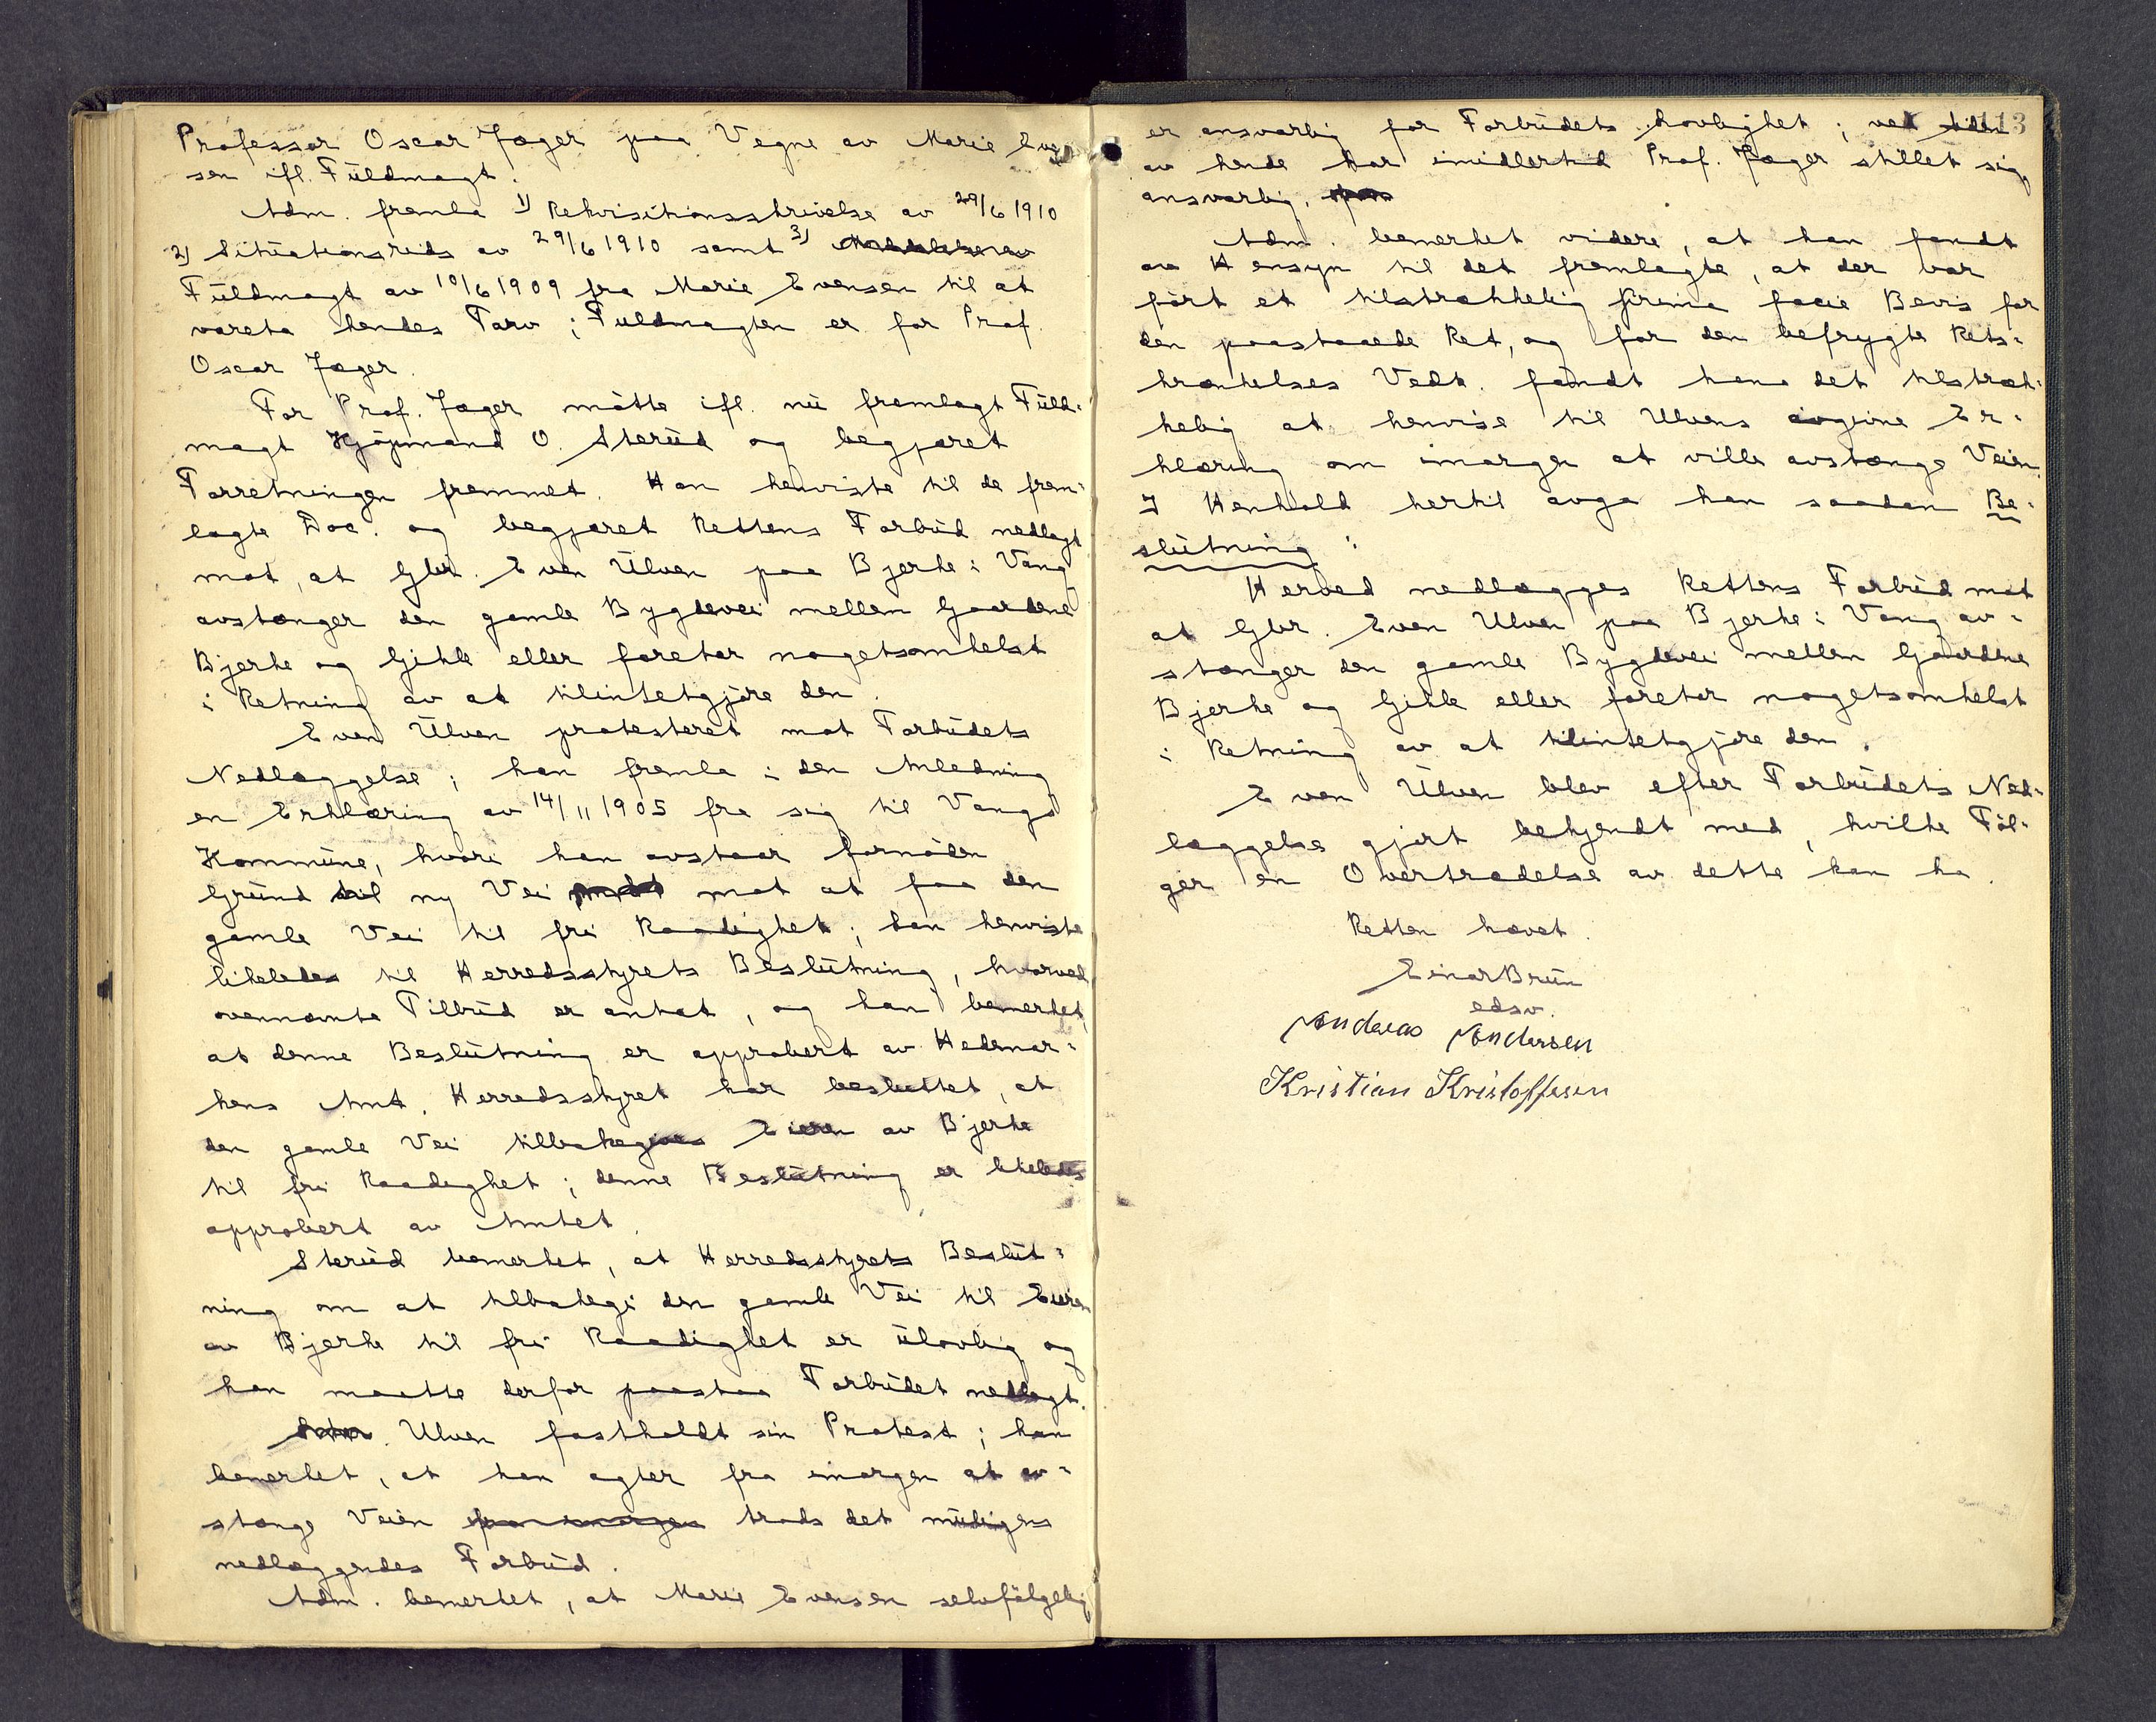 Professor Oscar Jæger paa Vegne av Marie Even
sen ifl. Fuldmagt.
Adm. fremla 1) Rekvisitionsskrivelse av 29/6 1910
2) Situationsrids av 29/6 1910 samt 3)
Fuldmagt av 10/6 1909 fra Marie Evensen til at
vareta hendes Tarv; Fuldmagten er for Prof.
Oscar Jæger.
For Prof. Jæger mötte ifl. nu fremlagt Fuld-
magt Kjöpmand O. Sterud og begjæret
Forretningen fremmet. Han henviste til de frem-
lagte Doc. og begjæret Rettens Forbud nedlagt
mot, at Gbr. Even Ulven paa Bjerke i Vang
avstænger den gamle Bygdevei mellem Gaardene
Bjerke og Gihle eller foretar nogetsomhelst
i Retning av at tilintetgjöre den.
Even Ulven protesteret mot Forbudets
Nedlæggelse; han fremla i den Anledning
en Erklæring av 14/11 1905 fra sig til Vangs
Kommune, hvori han avstaar fornöden
Grund til ny Vei mot at faa den
gamle Vei til fri Raadighet; han henviste
likeledes til Herredsstyrets Beslutning, hvorved
ovennævnte Tilbud er antat, og han bemerket,
at denne Beslutning er approbert av Hedemar-
kens Amt. Herredsstyret har besluttet, at
den gamle Vei tilbakegives Eieren av Bjerke
til fri Raadighet; denne Beslutning er likeledes
approbert av Amtet.
Sterud bemerket, at Herredsstyrets Beslut-
ning om at tilbakegi den gamle Vei til Eieren
av Bjerke til fri Raadighet er ulovlig og
han maatte derfor paastaa Forbudet nedlagt.
Ulven fastholdt sin Protest; han
bemerket, at han agter fra imorgen at av-
stænge Veien fra imorgen trods det muligens
nedlæggendes Forbud.
Adm. bemerket, at Marie Evensen selvfölgelig
113
er ansvarlig for Forbudets Lovlighet; ved Siden
av hende har imidlertid Prof. Jæger stillet sig
ansvarlig.
Adm. bemerket videre, at han fandt
av Hensyn til det fremlagte, at der var
fört et tilstrækkelig prima facie Bevis for
den paastaaede Ret, og for den befrygte Rets-
krænkelses Vedk. fandt han det tilstræk-
kelig at henvise til Ulvens avgivne Er-
klæring om imorgen at ville avstænge Veien.
I Henhold hertil avga han saadan Be-
slutning:
Herved nedlægges Rettens Forbud mot
at Gbr. Even Ulven paa Bjerke i Vang av-
stænger den gamle Bygdevei mellem Gaardene
Bjerke og Gihle eller foretar nogetsomhelst
i Retning av at tilintetgjöre den.
Even Ulven blev efter Forbudets Ned-
læggelse gjort bekjendt med, hvilke Föl-
ger en Overtrædelse av dette kan ha.
Retten hævet.
Einar Brun
edsv.
Andreas Andersen
Kristian Kristoffersen